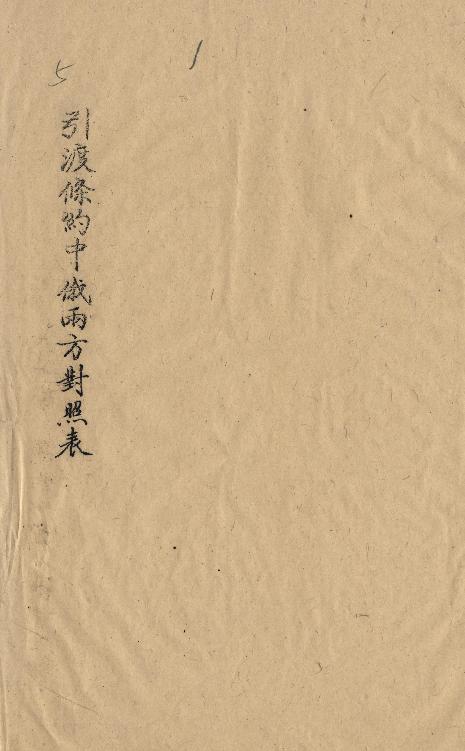 1
5
引渡條約中俄兩方對照表